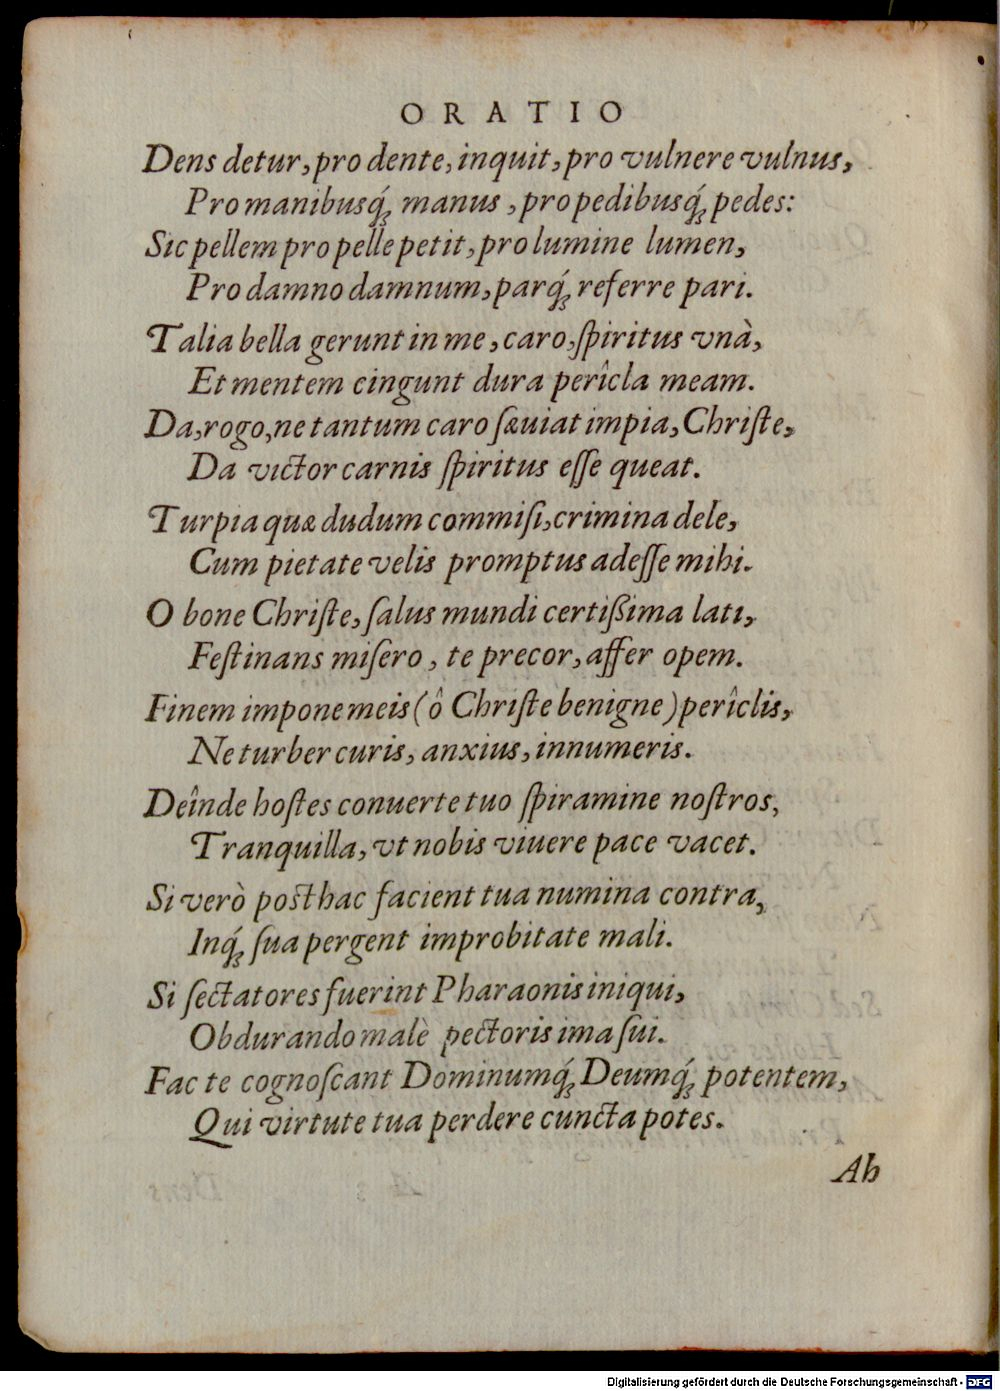 ORATIO
Dens detur, pro dente, inquit, pro vulnere vulnus,
Pro manibusq́ꝫ manus, pro pedibusq́ꝫ pedes:
Sic pellem pro pelle petit, pro lumine lumen,
Pro damno damnum, parq́ꝫ referre pari.
Talia bella gerunt in me, caro, ſpiritus vnà,
Et mentem cingunt dura perîcla meam.
Da, rogo, ne tantum caro ſæuiat impia, Chriſte,
Da victor carnis ſpiritus eſſe queat.
Turpia quæ dudum commiſi, crimina dele,
Cum pietate velis promptus adeſſe mihi.
O bone Chriſte, ſalus mundi certißima lati,
Feſtinans miſero, te precor, affer opem.
Finem impone meis (ô Chriſte benigne) perîclis,
Ne turber curis, anxius, innumeris.
Deînde hoſtes conuerte tuo ſpiramine noſtros,
Tranquilla, vt nobis viuere pace vacet.
Si verò posthac facient tua numina contra,
Inq́ꝫ ſua pergent improbitate mali.
Si ſectatores fuerint Pharaonis iniqui,
Obdurando malè pectoris ima ſui.
Fac te cognoſcant Dominumq́ꝫ Deumq́ꝫ potentem,
Qui virtute tua perdere cuncta potes.
Ab
Digitalisierung gefördert durch die Deutsche Forschungsgemeinschaft - DFG